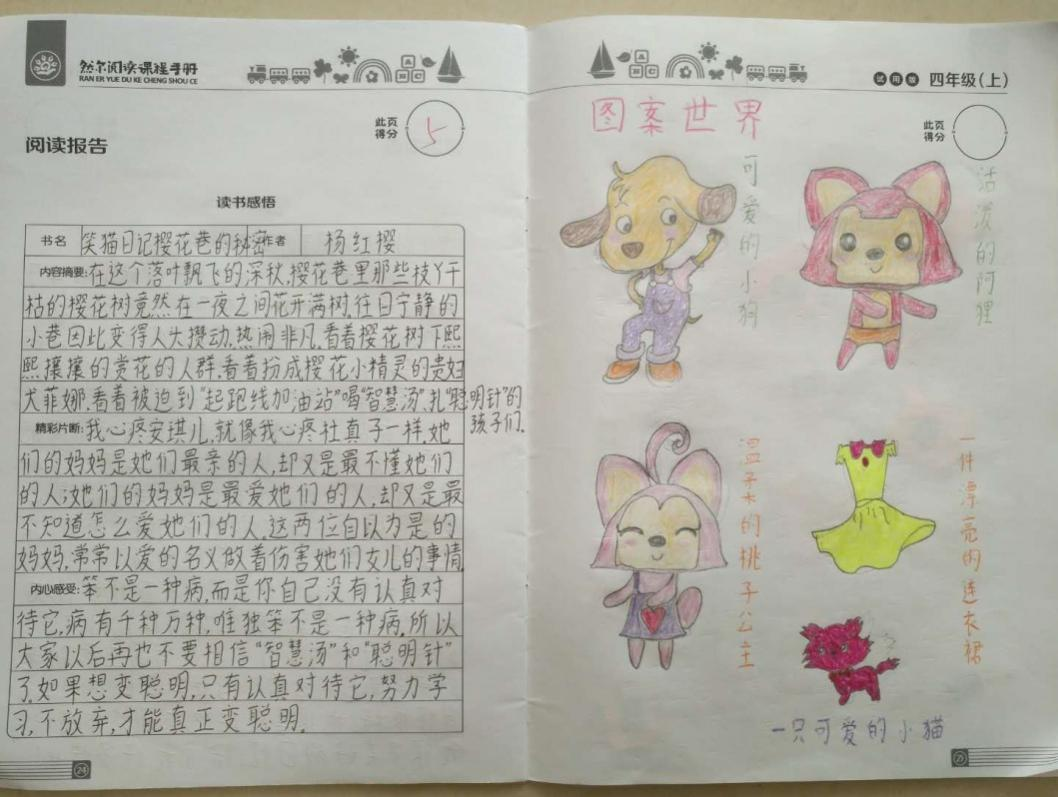 然尔阅读课程手册
RAN ER YUE DU KE CHENG SHOU CE
阅读报告
此页
得分
5
读书感悟
书名 笑猫日记樱花巷的秘密 作者 杨红樱
内容摘要:在这个落叶飘飞的深秋,樱花巷里那些枝丫干
枯的樱花树竟然在一夜之间花开满树.往日宁静的
小巷因此变得人头攒动,热闹非凡.看着樱花树下熙
熙攘攘的赏花的人群.看着扮成樱花小精灵的贵妇
犬菲娜.看着被迫到“起跑线加油站”喝“智慧汤”、扎“聪明针”的
孩子们.
精彩片断:我心疼安琪儿,就像我心疼杜真子一样,她
们的妈妈是她们最亲的人,却又是最不懂她们
的人;她们的妈妈是最爱她们的人,却又是最
不知道怎么爱她们的人.这两位自以为是的
妈妈,常常以爱的名义做着伤害她们女儿的事情
内心感受:笨不是一种病,而是你自己没有认真对
待它,病有千种万种,唯独笨不是一种病.所以
大家以后再也不要相信“智慧汤”和“聪明针”
了.如果想变聪明,只有认真对待它,努力学
习,不放弃,才能真正变聪明.
24
试用版 四年级(上)
此页
得分
图案世界
可爱的小狗
活泼的阿狸
温柔的桃子公主
一件漂亮的连衣裙
一只可爱的小猫